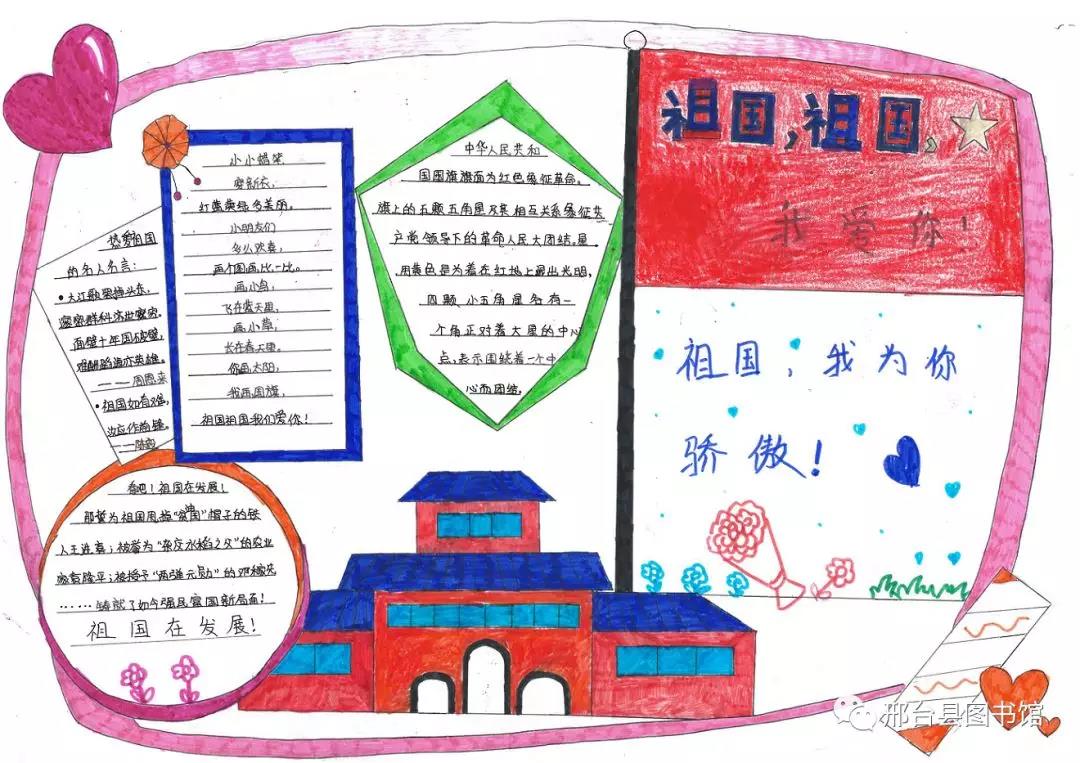 祖国,祖国,
我爱你!
祖国,我为你
骄傲!
小小蜡笔,
穿新衣,
红黄紫绿多美丽。
小朋友们
多么欢喜,
画个图画比一比。
画小鸟,
飞在蓝天里,
画小草,
长在春天里。
你画太阳,
我画国旗,
祖国祖国我们爱你!
中华人民共和
国国旗旗面为红色象征革命。
旗上的五颗五角星及其相互关系象征共
产党领导下的革命人民大团结。星
用黄色是为着在红地上显出光明,
四颗小五角星各有一
个角正对着大星的中心
点,表示围绕着一个中
心而团结。
热爱祖国
的名人名言:
•大江歌罢掉头东,
邃密群科济世穷。
面壁十年图破壁,
难酬蹈海亦英雄。
——周恩来
•祖国如有难,
汝应作前锋。
——陈毅
看吧!祖国在发展!
那誓为祖国甩掉“贫油国”帽子的铁
人王进喜;被誉为“杂交水稻之父”的农业
袁隆平;被授予“两弹元勋”的邓稼先
……铸就了如今强民富国新局面!
祖国在发展!
邢台县图书馆